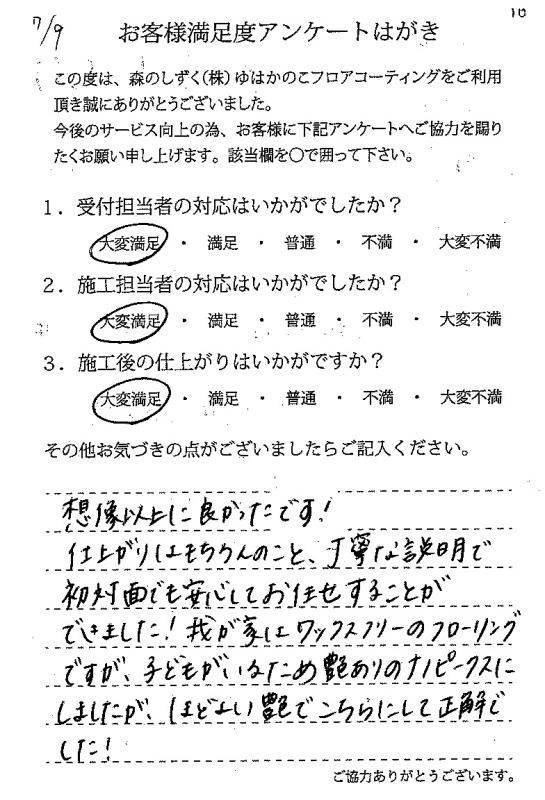 7/9
10
お客様満足度アンケートはがき
この度は、森のしずく(株)ゆはかのこフロアコーティングをご利用
頂き誠にありがとうございました。
今後のサービス向上の為、お客様に下記アンケートへご協力を賜り
たくお願い申し上げます。該当欄を〇で囲って下さい。
1．受付担当者の対応はいかがでしたか？
大変満足 ・ 満足 ・ 普通 ・ 不満 ・ 大変不満
2．施工担当者の対応はいかがでしたか？
大変満足 ・ 満足 ・ 普通 ・ 不満 ・ 大変不満
3．施工後の仕上がりはいかがですか？
大変満足 ・ 満足 ・ 普通 ・ 不満 ・ 大変不満
その他お気づきの点がございましたらご記入ください。
想像以上に良かったです！
仕上がりはもちろんのこと、丁寧な説明で
初対面でも安心してお任せすることが
できました！我が家はワックスフリーのフローリング
ですが、子どもがいるため艶ありのナノピークスに
しましたが、ほどよい艶でこちらにして正解で
した！
ご協力ありがとうございます。